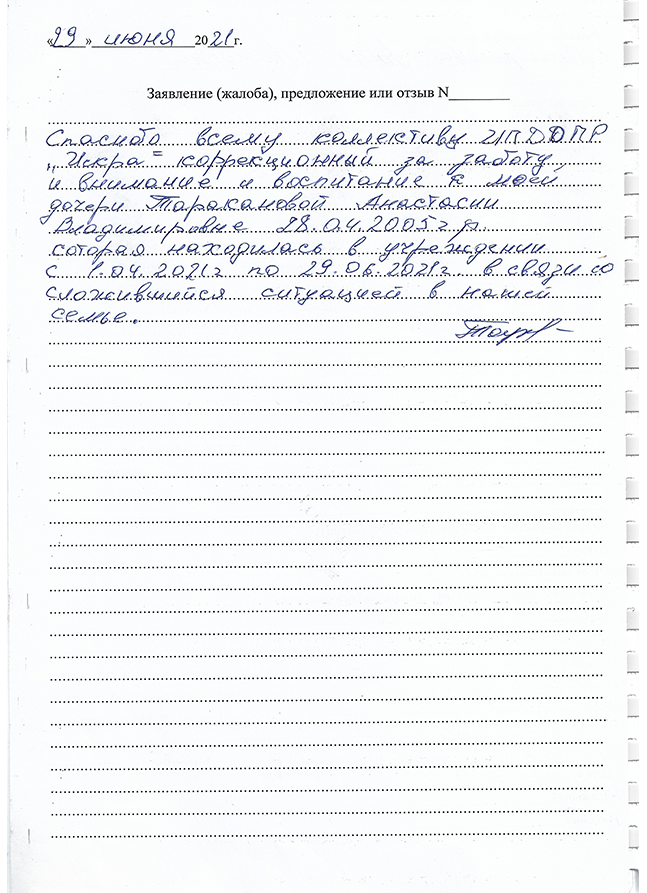 «29» июня 2021 г.
Заявление (жалоба), предложение или отзыв N
Спасибо всему коллективу ЦПДОПР
„Искра" коррекционный за заботу,
и внимание и воспитание к моей
дочери Таракановой Анастасии
Владимировне 28.04.2005 г.р.
которая находилась в учреждении
с 1.04.2021г по 29.06.2021г. в связи со
сложившийся ситуацией в нашей
семье.